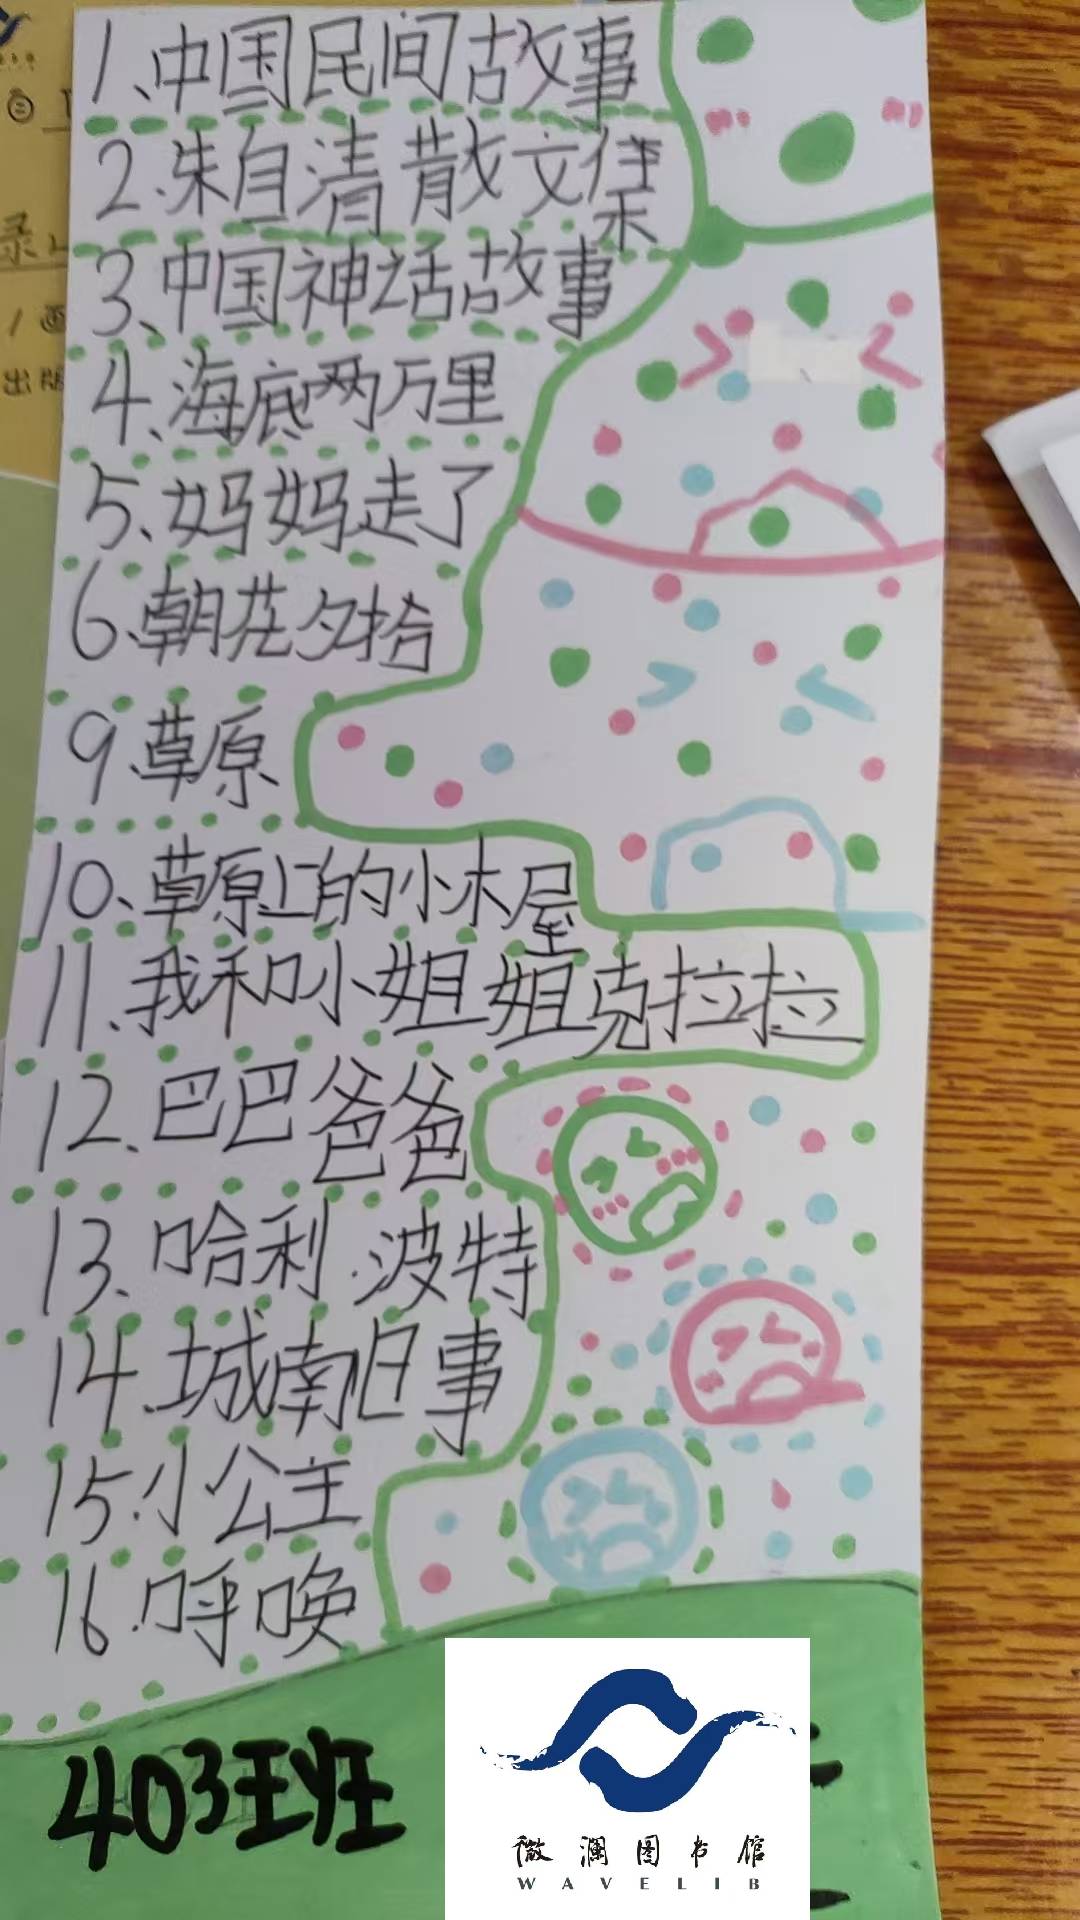 1、中国民间故事
2.朱自清散文集
3、中国神话故事
4、海底两万里
5、妈妈走了
6、朝花夕拾
9、草原
10、草原上的小木屋
11、我和小姐姐克拉拉
12、巴巴爸爸
13、哈利·波特
14.城南旧事
15.小公主
16.呼唤
403班
微澜图书馆
WAVELIB
出版